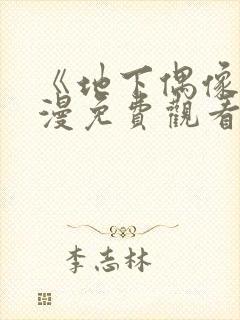 《地下偶像
漫免費觀看
李志林